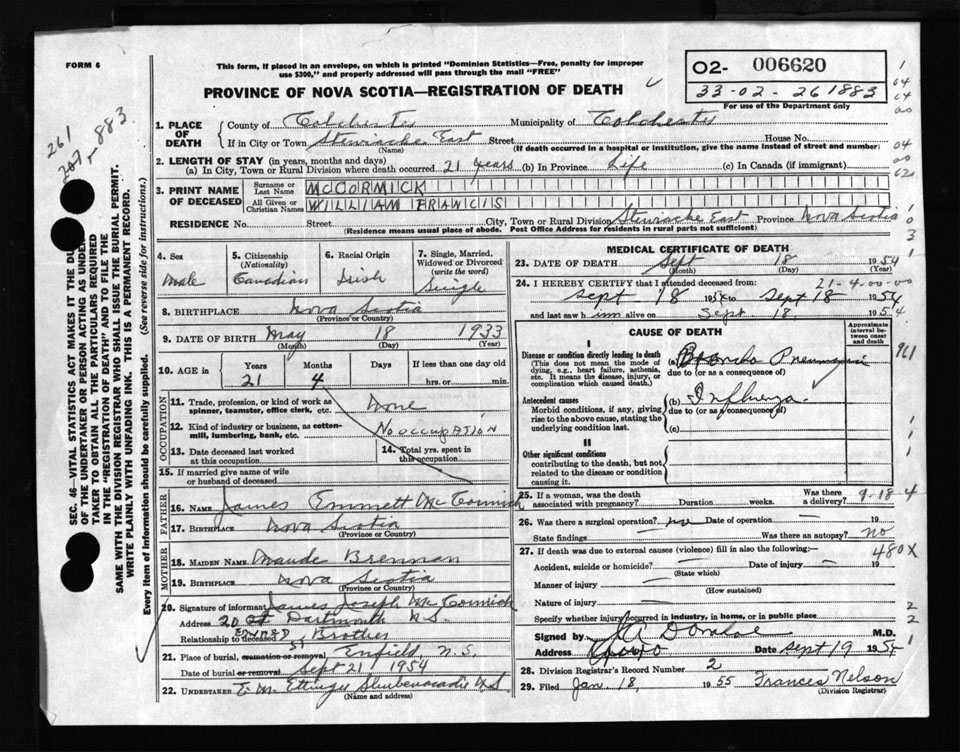 FORM 6
This form, if placed in an envelope, on which is printed "Dominion Statistics—Free, penalty for improper
use $300," and properly addressed will pass through the mail "FREE"
PROVINCE OF NOVA SCOTIA—REGISTRATION OF DEATH
02- 006620
33-02-261883
For use of the Department only
261
883
SEC. 46—VITAL STATISTICS ACT MAKES IT THE DU
OF THE UNDERTAKER OR PERSON ACTING AS UNDE
TAKER TO OBTAIN ALL THE PARTICULARS REQUIRED
IN THE "REGISTRATION OF DEATH" AND TO FILE THE
SAME WITH THE DIVISION REGISTRAR WHO SHALL ISSUE THE BURIAL PERMIT.
WRITE PLAINLY WITH UNFADING INK. THIS IS A PERMANENT RECORD.
Every item of information should be carefully supplied. (See reverse side for instructions.)
1. PLACE OF DEATH
County of Colchester Municipality of Colchester
If in City or Town Stewiacke East Street House No.
(Name) (If death occurred in a hospital or institution, give the name instead of street and number)
2. LENGTH OF STAY (in years, months and days)
(a) In City, Town or Rural Division where death occurred 21 years (b) In Province Life (c) In Canada (if immigrant)
3. PRINT NAME OF DECEASED
Surname or Last Name McCORMICK
All Given or Christian Names WILLIAM FRANCIS
RESIDENCE No. Street City, Town or Rural Division Stewiacke East Province Nova Scotia
(Residence means usual place of abode. Post Office Address for residents in rural parts not sufficient)
4. Sex Male
5. Citizenship (Nationality) Canadian
6. Racial Origin Irish
7. Single, Married, Widowed or Divorced (write the word) Single
8. BIRTHPLACE Nova Scotia
(Province or Country)
9. DATE OF BIRTH May 18 1933
(Month) (Day) (Year)
10. AGE in Years Months Days If less than one day
21 4 hrs. or min.
OCCUPATION
11. Trade, profession, or kind of work as spinner, teamster, office clerk, etc. None
12. Kind of industry or business, as cotton-mill, lumbering, bank, etc. No occupation
13. Date deceased last worked at this occupation
14. Total yrs. spent in this occupation
15. If married give name of wife or husband of deceased
FATHER
16. NAME James Emmett McCormick
17. BIRTHPLACE Nova Scotia
(Province or Country)
MOTHER
18. MAIDEN NAME Maude Brennan
19. BIRTHPLACE Nova Scotia
(Province or Country)
20. Signature of informant James Joseph McCormick
Address Dartmouth N.S.
Relationship to deceased Brother
21. Place of burial, cremation or removal Enfield, N.S.
Date of burial or removal Sept 21 1954
22. UNDERTAKER Ettinger Shubenacadie N.S
(Name and address)
MEDICAL CERTIFICATE OF DEATH
23. DATE OF DEATH Sept 18 1954
(Month) (Day) (Year)
24. I HEREBY CERTIFY that I attended deceased from: 21-4-00-00
Sept 18 1954 to Sept 18 1954
and last saw him alive on Sept 18, 1954
CAUSE OF DEATH
Approximate interval between onset and death
I
Disease or condition directly leading to death
(This does not mean the mode of dying, e.g., heart failure, asthenia, etc. It means the disease, injury, or complication which caused death.)
(a) Broncho Pneumonia
due to (or as a consequence of)
Antecedent causes
Morbid conditions, if any, giving rise to the above cause, stating the underlying condition last.
(b) Influenza
due to (or as a consequence of)
(c)
II
Other significant conditions
contributing to the death, but not related to the disease or condition causing it.
25. If a woman, was the death associated with pregnancy? Duration weeks. Was there a delivery? 9-18-4
26. Was there a surgical operation? no Date of operation — 19
State findings — Was there an autopsy? no
27. If death was due to external causes (violence) fill in also the following:— 480X
Accident, suicide or homicide? — Date of injury — 19
(State which)
Manner of injury —
(How sustained)
Nature of injury —
Specify whether injury occurred in industry, in home, or in public place
Signed by M.D.
Address Date Sept 19 1955
28. Division Registrar's Record Number 2
29. Filed Jan. 18, 1955 Frances Nelson
(Division Registrar)